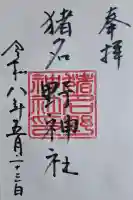 奉拝
猪名野神社
令和八年五月二十三日